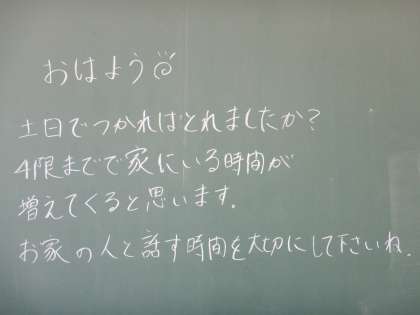 おはよう
土日でつかれはとれましたか?
4限までで家にいる時間が
増えてくると思います.
お家の人と話す時間を大切にして下さいね.